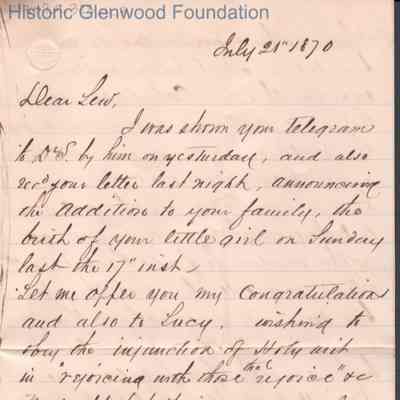 Historic Glenwood Foundation
July 21st 1870
Dear Lew,
I was shown your telegram
to D.S. by him on yesterday, and also
recd your letter last night, announcing
the addition to your family, the
birth of your little girl on Sunday
last the 17" inst
Let me offer you my Congratulations
and also to Lucy. wishing to
obey the injunction of Holy writ
in "rejoicing with those that rejoice" &c